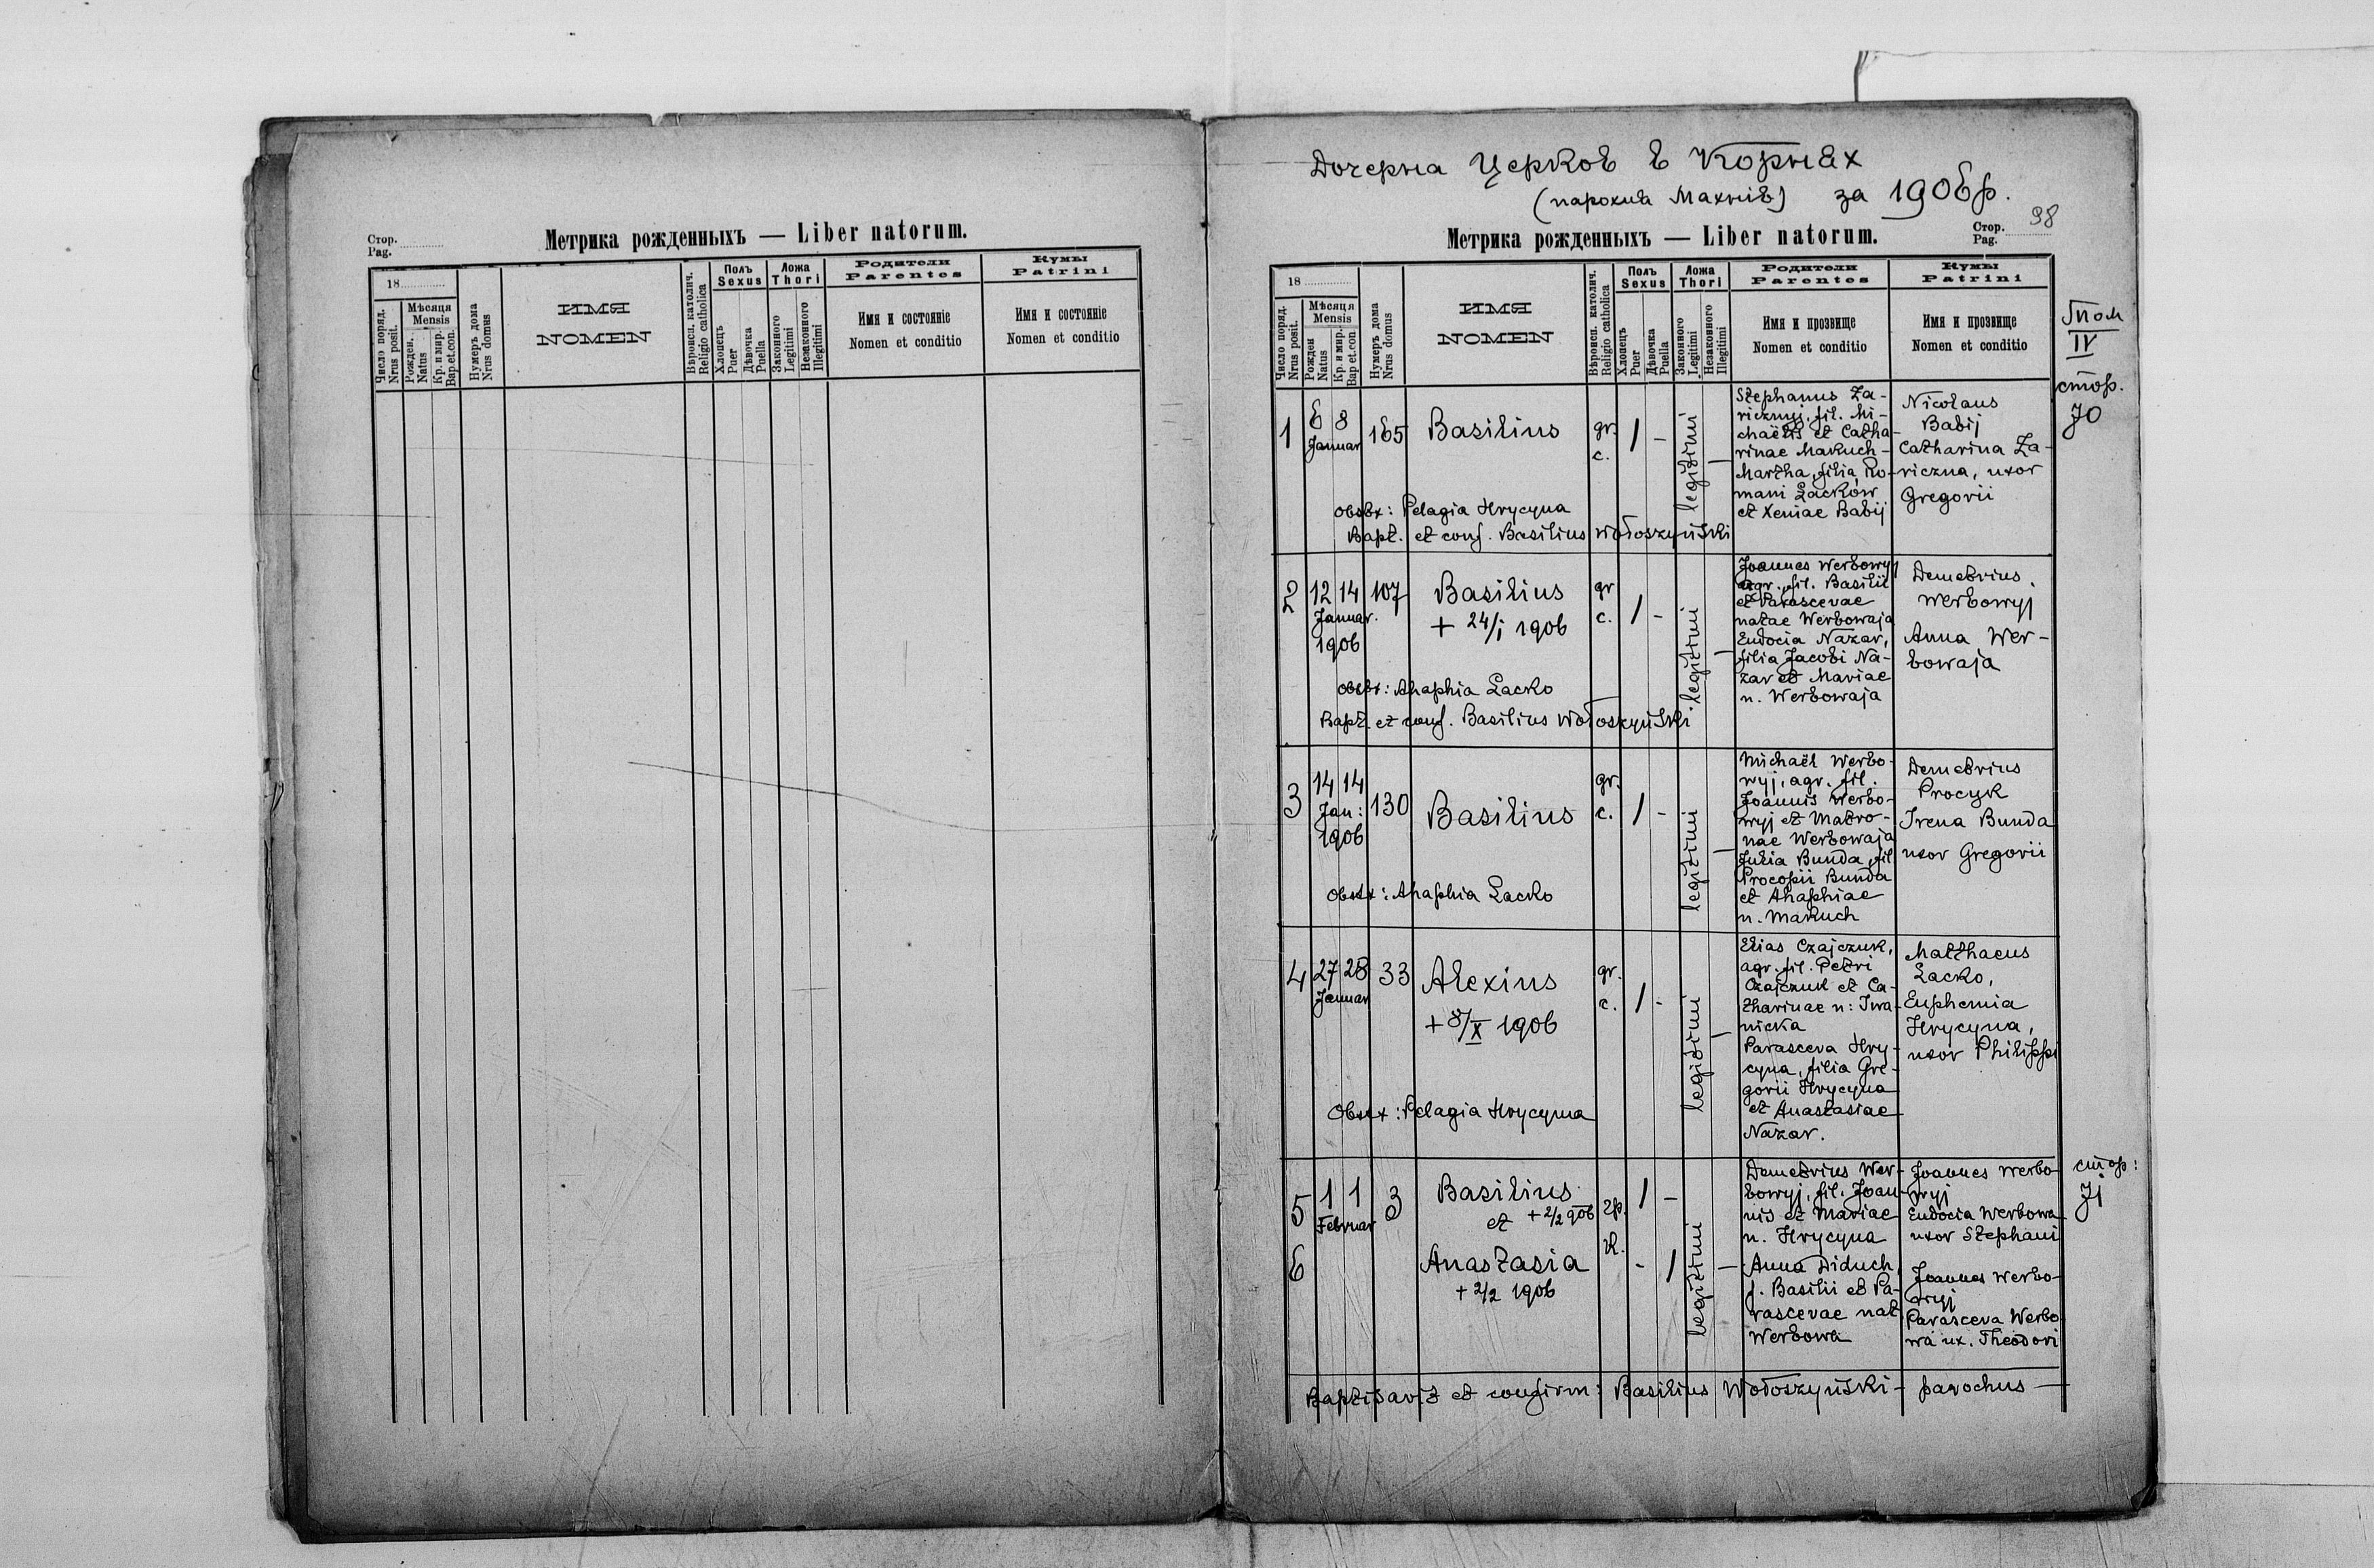 Стор.
Pag.
Метрика рожденныхъ — Liber natorum.
18
Число поряд.
Nrus posit.
Мѣсяця
Mensis
Рожден.
Natus
Кр. и мир.
Bap. et. con.
Нумеръ дома
Nrus domus
ИМЯ
NOMEN
Вѣроисп. католич.
Religio catholica
Полъ
Sexus
Хлопецъ
Puer
Дѣвочка
Puella
Ложа
Thori
Законного
Legitimi
Незаконного
Illegitimi
Родители
Parentes
Имя и состояніе
Nomen et conditio
Кумы
Patrini
Имя и состояніе
Nomen et conditio
Дочерна Церков в Корнях
(парохия Махнів) за 1906 р.
Метрика рожденныхъ — Liber natorum.
Стор.
Pag. 98
18
Число поряд.
Nrus posit.
Мѣсяця
Mensis
Рожден
Natus
Кр. и мир.
Bap et con
Нумеръ дома
Nrus domus
ИМЯ
NOMEN
Вѣроисп. католич.
Religio catholica
Полъ
Sexus
Хлопецъ
Puer
Дѣвочка
Puella
Ложа
Thori
Законного
Legitimi
Незаконного
Illegitimi
Родители
Parentes
Имя и прозвище
Nomen et conditio
Кумы
Patrini
Имя и прозвище
Nomen et conditio
Том
IV
стор.
70
1
6 8
Januar
165
Basilius
gr.
c.
1 -
legitimi
-
Stephanus Za-
ricznyj, fil. Mi-
chaëlis et Catha-
rinae Makuch -
Martha, filia Ro-
mani Lacków
et Xeniae Babij
Nicolaus
Babij
Catharina Za-
riczna, uxor
Gregorii
Obstx: Pelagia Hrycyna
Bapt. et conf. Basilius Wołoszyński
2
12 14
Januar.
1906
107
Basilius
+ 24/i 1906
gr
c.
1 -
legitimi
-
Joannes Werbowyj
agr., fil. Basilii
et Parascevae
natae Werbowaja
Eudocia Nazar,
filia Jacobi Na-
zar et Mariae
n. Werbowaja
Demetrius
Werbowyj
Anna Wer-
bowaja
obstx: Ahaphia Lacko
Bapt. et conf. Basilius Wołoszyński
3
14 14
Jan:
1906
130
Basilius
gr.
c.
1 -
legitimi
-
Michaël Werbo-
wyj, agr. fil.
Joannis Werbo-
wyj et Matro-
nae Werbowaja
Julia Bunda, fil
Procopii Bunda
et Ahaphiae
n. Makuch
Demetrius
Procyk
Irena Bunda
uxor Gregorii
Obstx: Ahaphia Lacko
4
27 28
Januar
33
Alexius
+ 8/X 1906
gr.
c.
1 -
legitimi
-
Elias Czajczuk,
agr. fil. Petri
Czajczuk et Ca-
tharinae n: Iwa-
nicka
Parasceva Hry-
cyna, filia Gre-
gorii Hrycyna
et Anastasiae
Nazar.
Matthaeus
Lacko,
Euphemia
Hrycyna,
uxor Philippi
Obstx: Pelagia Hrycyna
5
1 1
Februar
3
Basilius
et + 2/2 906
гр.
к.
1 -
legitimi
-
Demetrius Wer-
bowyj, fil. Joan-
nis et Mariae
n. Hrycyna
Anna Diduch,
f. Basilii et Pa-
rascevae nat
Werbowa
Joannes Werbo-
wyj
Eudocia Werbowa
uxor Stephani
стор:
71
6
Anastasia
+ 2/2 1906
- 1
Joannes Werbo-
wyj
Parasceva Werbo
wa ux. Theodori
Baptisavit et confirm: Basilius Wołoszyński - parochus -